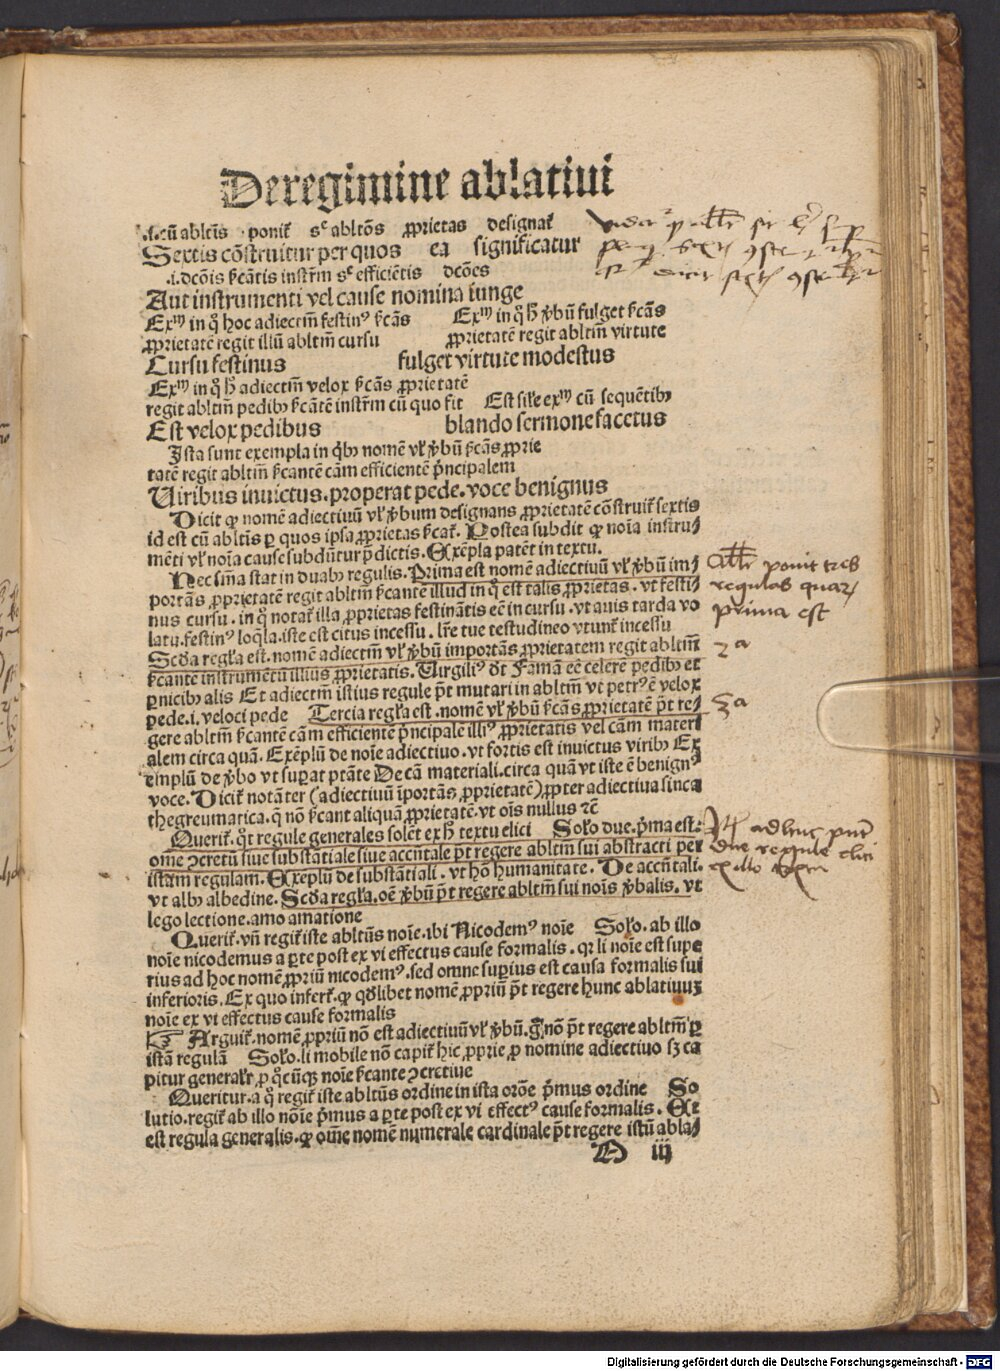 De regimine ablatiui
.i. cũ abltĩs poniť sᶜ abltõs ꝓprietas designať
Sextis cõstruitur per quos ea significatur
.i. dcõis ſ̃cãtis instr̃m sᶜ efficiẽtis dcões
Aut instrumenti vel cause nomina iunge
Exᵐ in q̊ hoc adiectm̃ festinꝰ ſ̃cãs Exᵐ in q̊ h̃ ꝟbũ fulget ſ̃cãs
ꝓprietatẽ regit illũ abltm̃ cursu ꝓprietatẽ regit abltm̃ virtute
Cursu festinus fulget virtute modestus
Exᵐ in q̊ h̃ adiectm̃ velox ſ̃cãs ꝓprietatẽ
regit abltm̃ pedibꝫ ſ̃cãtẽ instr̃m cũ quo fit Est sil̃e exᵐ cũ sequẽtibꝫ
Est velox pedibus blando sermone facetus
Ista sunt exempla in q̇bꝫ nomẽ vl̃ ꝟbũ ſ̃cãs ꝓprie
tatẽ regit abltm̃ ſ̃cantẽ cãm efficientẽ p̃ncipalem
Uiribus inuictus. properat pede. voce benignus
Dicit ꝙ nomẽ adiectiuũ vl̃ ꝟbum designans ꝓprietatẽ cõstruiť sextis
id est cũ abltĩs ꝑ quos ipsa ꝓprietas ſ̃cať. Postea subdit ꝙ noĩa instru⸗
mẽti vl̃ noĩa cause subdũtur p̃dictis. Exẽpla patẽt in textu.
Hec sñia stat in duabꝫ regulis. Prima est nomẽ adiectiuũ vl̃ ꝟbũ im⸗
portãs ꝓprietatẽ regit abltm̃ ſ̃cantẽ illud in q̊ est talis ꝓprietas. vt festi⸗
nus cursu. in q̊ notať illa ꝓprietas festinãtis eẽ in cursu. vt auis tarda vo
latu. festinꝰ loq̃la. iste est citus incessu. lr̃e tue testudineo vtunť incessu
Scd̃a regl̃a est. nomẽ adiectm̃ vl̃ ꝟbũ importãs ꝓprietatem regit abltm̃
ſ̃cantẽ instrumẽtũ illius ꝓprietatis. Uirgiliꝰ dt̃ Famã eẽ celerẽ pedibꝫ et
ꝑnicibꝫ alis Et adiectm̃ istius regule p̃t mutari in abltm̃ vt petrꝰ ẽ velox
pede. i. veloci pede Tercia regl̃a est. nomẽ vl̃ ꝟbũ ſ̃cãs ꝓprietatẽ p̃t re⸗
gere abltm̃ ſ̃cantẽ cãm efficientẽ p̃ncipale illiꝰ ꝓprietatis vel cãm materi
alem circa quã. Exẽplũ de noĩe adiectiuo. vt fortis est inuictus viribꝫ Ex
emplũ de ꝟbo vt suꝑat ptãte De cã materiali. circa quã vt iste ẽ benignꝰ
voce. Diciť notãter (adiectiuũ ĩportãs ꝓprietatẽ) ꝓpter adiectiua sinca
thegreumatica. q̃ nõ ſ̃cant aliquã ꝓprietatẽ. vt oĩs nullus ⁊c̃
Queriť. q̃t regule generales solẽt ex h̃ textu elici Sol̃o due. p̃ma est.
ome ɔcretũ siue substãtiale siue accñtale p̃t regere abltm̃ sui abstracti per
istam regulam. Exẽplũ de substãtiali. vt hõ humanitate. De accñtali.
vt albꝫ albedine. Scd̃a regl̃a. oẽ ꝟbũ p̃t regere abltm̃ sui noĩs ꝟbalis. vt
lego lectione. amo amatione
Queriť. vñ regiť iste abltũs noĩe. ibi Nicodemꝰ noĩe Sol̃o. ab illo
noĩe nicodemus a ꝑte post ex vi effectus cause formalis. qr li noĩe est supe
rius ad hoc nomẽ ꝓpriũ nicodemꝰ. sed omne suꝑius est causa formalis sui
inferioris. Ex quo inferť. ꝙ qd̃libet nomẽ ꝓpriũ p̃t regere hunc ablatiuuꝫ
noĩe ex vi effectus cause formalis
☞ Arguiť. nomẽ ꝓpriũ nõ est adiectiuũ vl̃ ꝟbũ. g̊ nõ p̃t regere abltm̃ ꝑ
istã regulã Sol̃o. li mobile nõ capiť hic ꝓprie ꝓ nomine adiectiuo sꝫ ca
pitur general̃r ꝓ q̊cũqꝫ noĩe ſ̃cante ɔcretiue
Queritur. a q̊ regiť iste abltũs ordine in ista orõe p̃mus ordine So
lutio. regiť ab illo nõie p̃mus a ꝑte post ex vi effectꝰ cause formalis. Et
est regula generalis. ꝙ om̃e nomẽ numerale cardinale p̃t regere istũ abla⸗
A iij
Allr̃ ponit tres
regulas quarꝫ
prima est
2ᵃ
3ᵃ
adhuc
due regule elici
ex illo
Digitalisierung gefördert durch die Deutsche Forschungsgemeinschaft - DFG